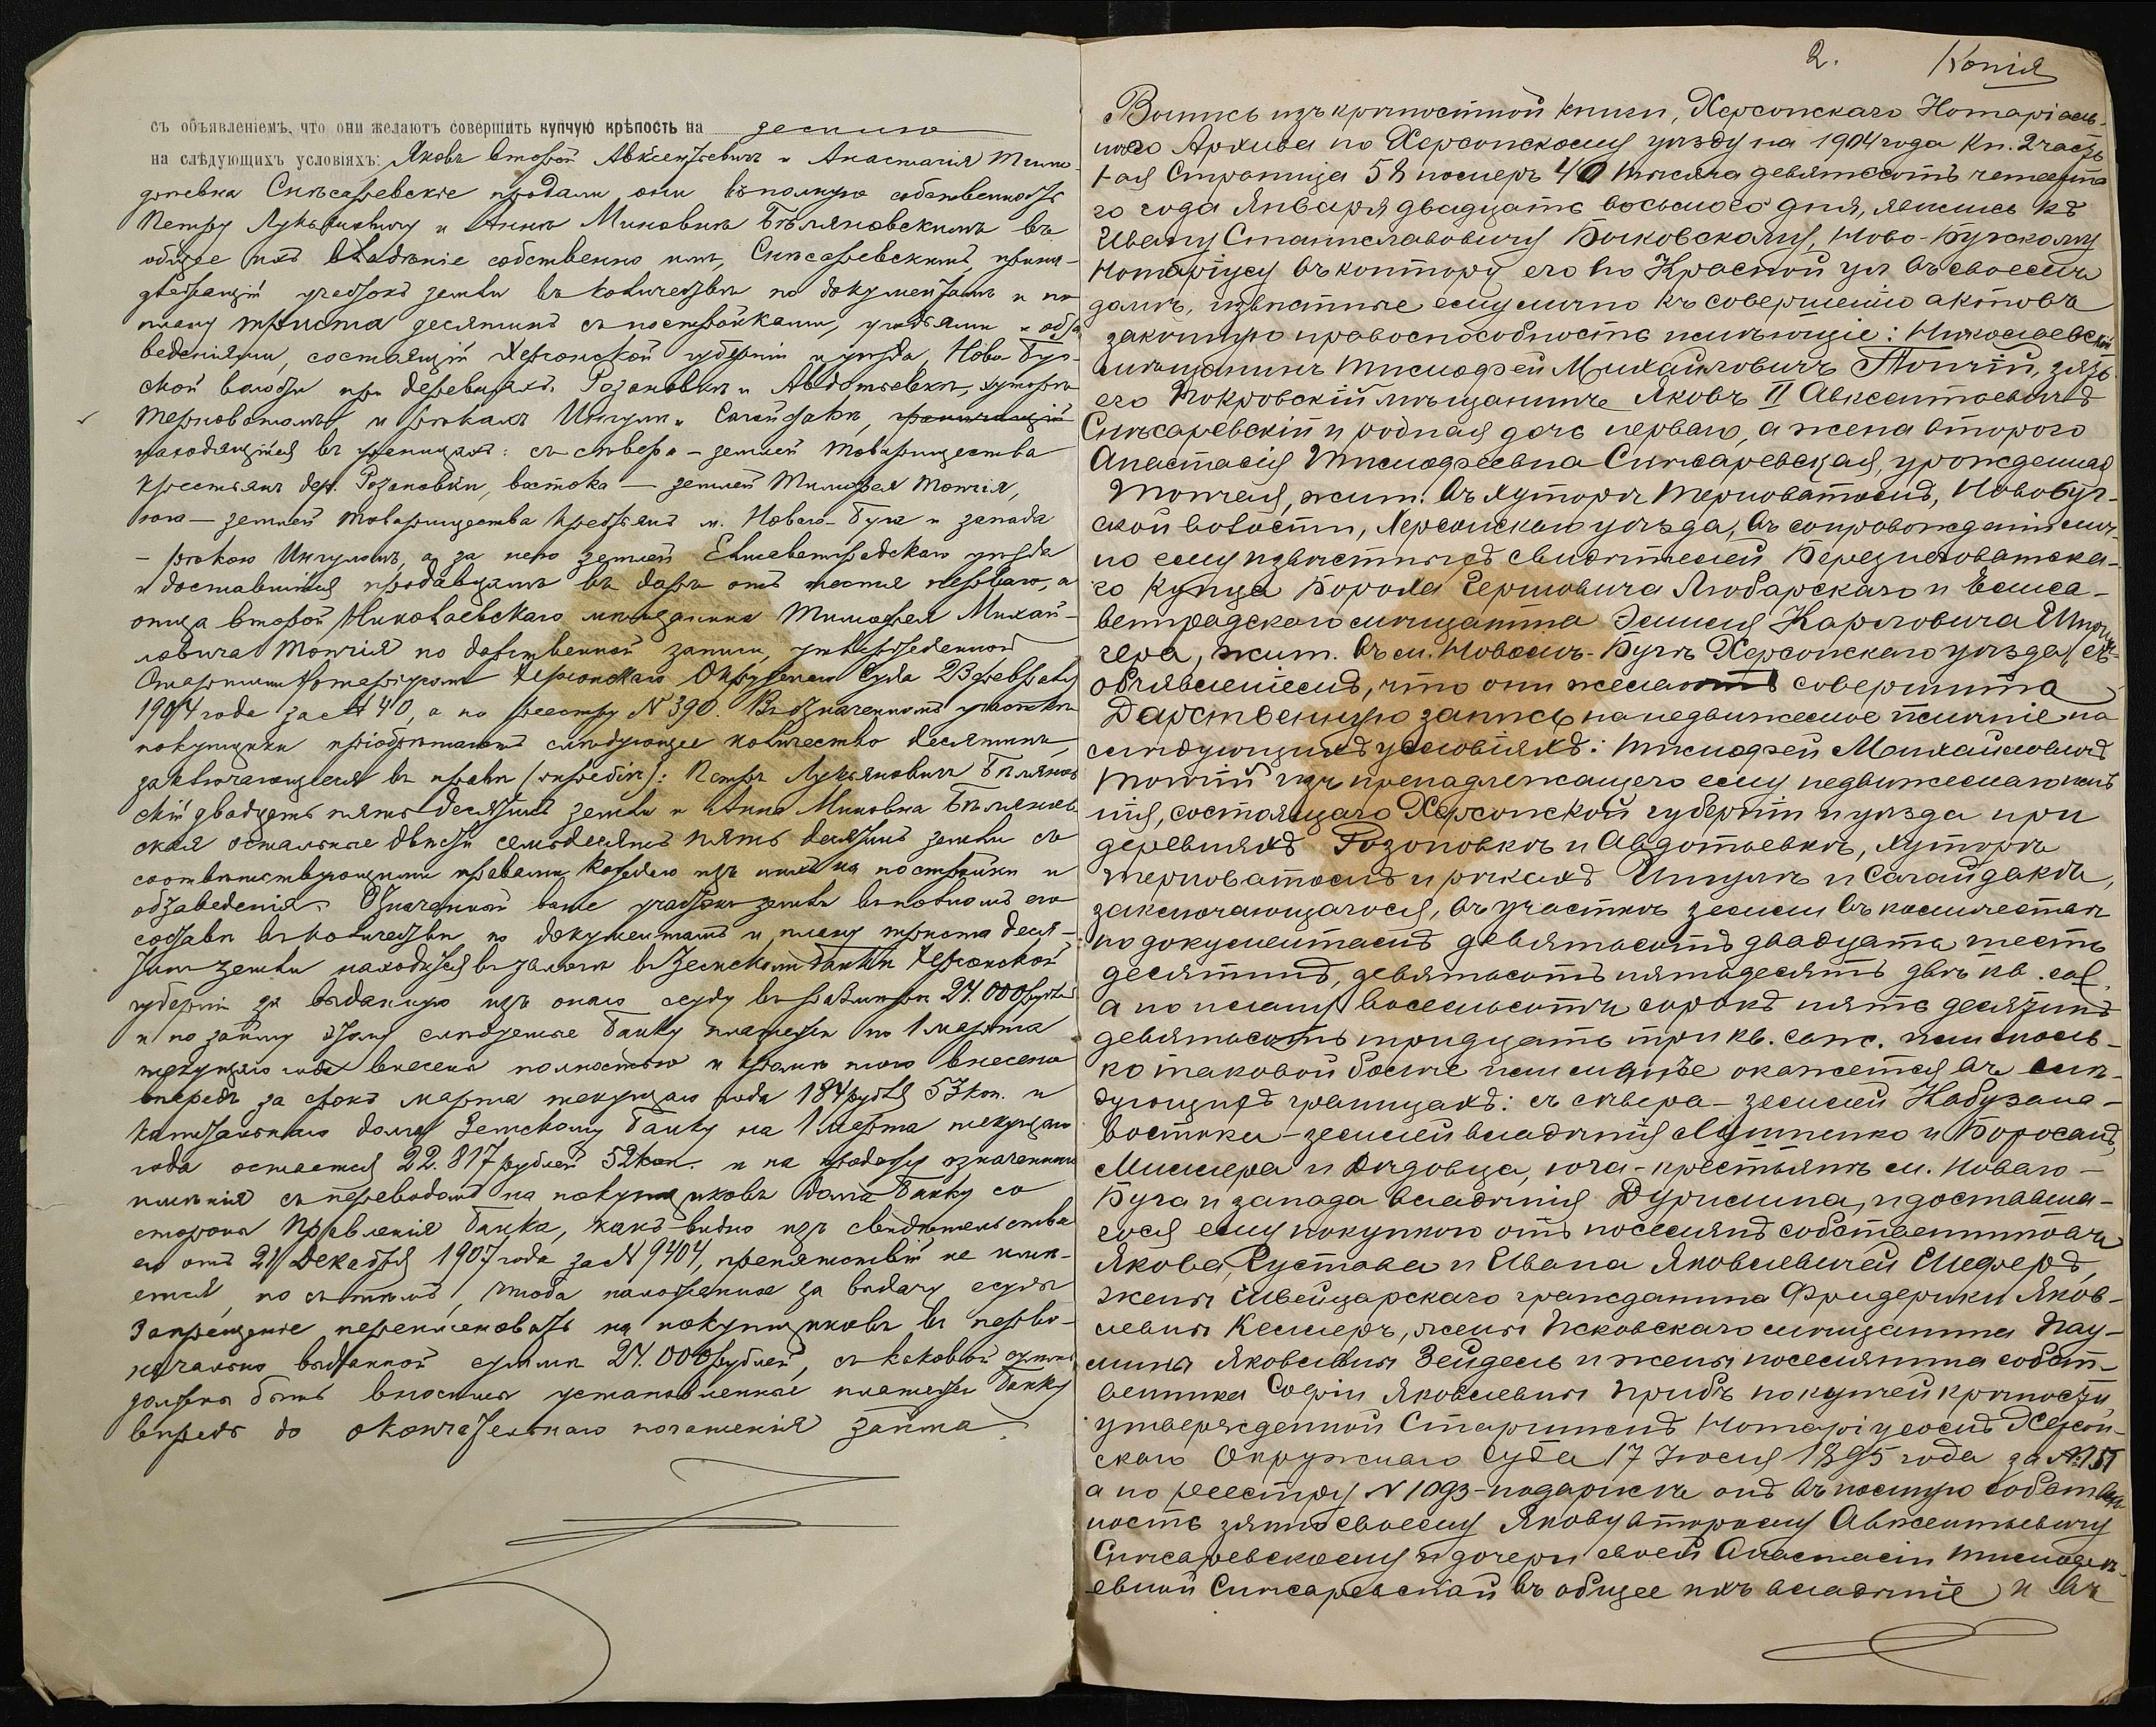 съ объявленіемъ, что они желаютъ совершить купчую крѣпость на землю
на слѣдующихъ условіяхъ: Яковъ второй Авксентьевичъ и Анастасія Тимо-
феевна Снѣсаревскіе продали они въ полную собственность
Петру Лукьяновичу и Аннѣ Миновнѣ Бѣляновскимъ въ
общее ихъ владѣніе собственно имъ, Снѣсаревскимъ, прина-
длежащій участокъ земли въ количествѣ по документамъ и по
плану триста десятинъ съ постройками, угодьями и обза
веденіями, состоящій Херсонской губерніи и уѣзда, Ново-Буг-
ской волости при деревняхъ Розановкѣ и Авдотьевкѣ, хуторѣ
Терноватомъ и рѣкахъ Ингулѣ и Сагайдакѣ,
находящійся въ границахъ: съ сѣвера – землей товарищества
крестьянъ дер. Розановки, востока — землей Тимофея Топчія,
юга — землей товарищества крестьянъ м. Новаго-Буга и запада
– рѣкою Ингуломъ, а за нею землей Елисаветградскаго уѣзда
и доставшійся продавцамъ въ даръ отъ тестя перваго, а
отца второй Николаевскаго мѣщанина Тимофея Михай-
ловича Топчія по дарственной записи, утвержденной
Старшимъ Нотаріусомъ Херсонскаго Окружнаго Суда 23 февраля
1904 года за № 40, а по реестру № 390. Въ означенномъ участкѣ
покупщики пріобрѣтаютъ слѣдующее количество десятинъ,
заключающееся въ правѣ (жребіи): Петръ Лукьяновичъ Бѣлянов
скій двадцать пять десятинъ земли и Анна Миновна Бѣлянов
ская остальные двѣсти семьдесятъ пять десятинъ земли съ
соотвѣтствующими правами каждаго изъ нихъ на постройки и
обзаведенія. Означенный выше участокъ земли въ полномъ его
составѣ въ количествѣ по документамъ и плану триста деся-
тинъ земли находится въ залогѣ въ Земскомъ Банкѣ Херсонской
губерніи за выданную изъ онаго ссуду въ размѣрѣ 24.000 рублей
и по займу этому слѣдуемые Банку платежи по 1 марта
текущаго года внесены полностью и кромѣ того внесено
впередъ за срокъ марта текущаго года 184 рубля 57 коп. и
капитальнаго долга Земскому Банку на 1 марта текущаго
года остается 22.817 рублей 52 коп. и на продажу означеннаго
имѣнія съ переводомъ на покупщиковъ долга Банку со
стороны Правленія Банка, какъ видно изъ свидѣтельства
его отъ 21 Декабря 1907 года за № 9404, препятствій не имѣ-
ется, но съ тѣмъ, чтобы наложенное за выдачу ссуды
запрещеніе переименовать на покупщиковъ въ перво-
начально выданной суммѣ 24.000 рублей, съ каковой суммы
должны быть вносимы установленные платежи Банку
впредь до окончательнаго погашенія займа.
2. Копія
Выпись изъ крѣпостной книги, Херсонскаго Нотаріаль-
наго Архива по Херсонскому уѣзду на 1904 года Кн. 2 часть
1-ая Страница 58 номеръ 40 Тысяча девятьсотъ четверта
го года Января двадцать восьмого дня, явились къ
Ивану Станиславовичу Быковскому, Ново-Бугскому
Нотаріусу въ контору его по Красной ул въ своемъ
домѣ, извѣстные ему лично къ совершенію актовъ
законную правоспособность имѣющіе: Николаевскій
мѣщанинъ Тимофей Михайловичъ Топчій, зять
его Покровскій мѣщанинъ Яковъ II Авксентьевичъ
Снѣсаревскій и родная дочь перваго, а жена второго
Анастасія Тимофеевна Снѣсаревская, урожденная
Топчая, жит. въ хуторѣ Терноватомъ, Новобуг-
ской волости, Херсонскаго уѣзда, въ сопровожденіи лич-
но ему извѣстныхъ свидѣтелей Березнеговатска-
го купца Бороха Гершовича Любарскаго и Елиса-
ветградскаго мѣщанина Эмиля Карловича
гера, жит. въ м. Новомъ-Бугѣ Херсонскаго уѣзда, съ
объявленіемъ, что они желаютъ совершить
Дарственную запись на недвижимое имѣніе на
слѣдующихъ условіяхъ: Тимофей Михайловичъ
Топчій изъ принадлежащего ему недвижимаго имѣ
нія, состоящаго Херсонской губерніи и уѣзда при
деревняхъ Розоновкѣ и Авдотьевкѣ, хуторѣ
Терноватомъ и рѣкахъ Ингулѣ и Сагайдакѣ,
заключающагося, въ участкѣ земли въ количествѣ
по документамъ девятьсотъ двадцать шесть
десятинъ, девятьсотъ пятьдесятъ двѣ кв. саж.
а по плану восемьсотъ сорокъ пять десятинъ
девятьсотъ тридцать три кв. саж. или сколь-
ко таковой болѣе или менѣе окажется въ слѣ-
дующихъ границахъ: съ сѣвера – землей Кабузана –
востока – землей владѣнія Лутченко и Боросанъ,
Миллера и Дѣдовца, юга – крестьянъ м. Новаго –
Буга и запада владѣнія Дурилина, и доставша-
гося ему покупкою отъ поселянъ собственниковъ
Якова, Густава и Ивана Яковлевичей Шеферъ,
жены Швейцарскаго гражданина Фридерики Яков-
левны Келлеръ, жены Псковскаго мѣщанина Пау-
лины Яковлевны Зейдель и жены поселянина собст-
венника Софіи Яковлевны Прибъ по купчей крѣпости,
утвержденной Старшимъ Нотаріусомъ Херсон-
скаго Окружнаго Суда 17 Іюля 1895 года за № 151
а по реестру № 1093 – подарилъ онъ въ полную собствен
ность зятю своему Якову второму Авксентьевичу
Снѣсаревскому и дочери своей Анастасіи Тимофе-
евной Снѣсаревской въ общее ихъ владѣніе и въ